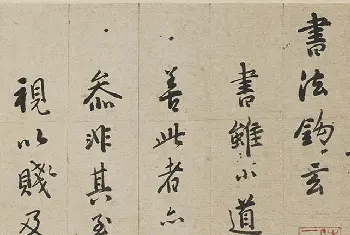 書法鈎玄
書雖小道
善此者亦
叅非其至
視以賤及